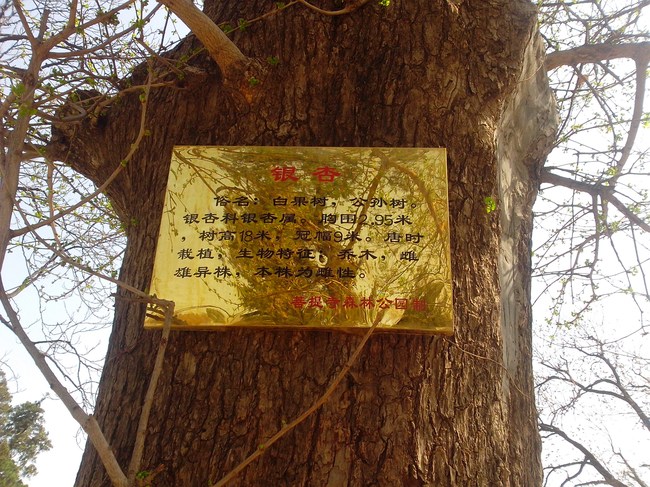 银杏
俗名：白果树，公孙树。
银杏科银杏属。胸围2.95米
，树高18米，冠幅9米。唐时
栽植，生物特征：乔木，雌
雄异株，本株为雌性。
菩提寺森林公园